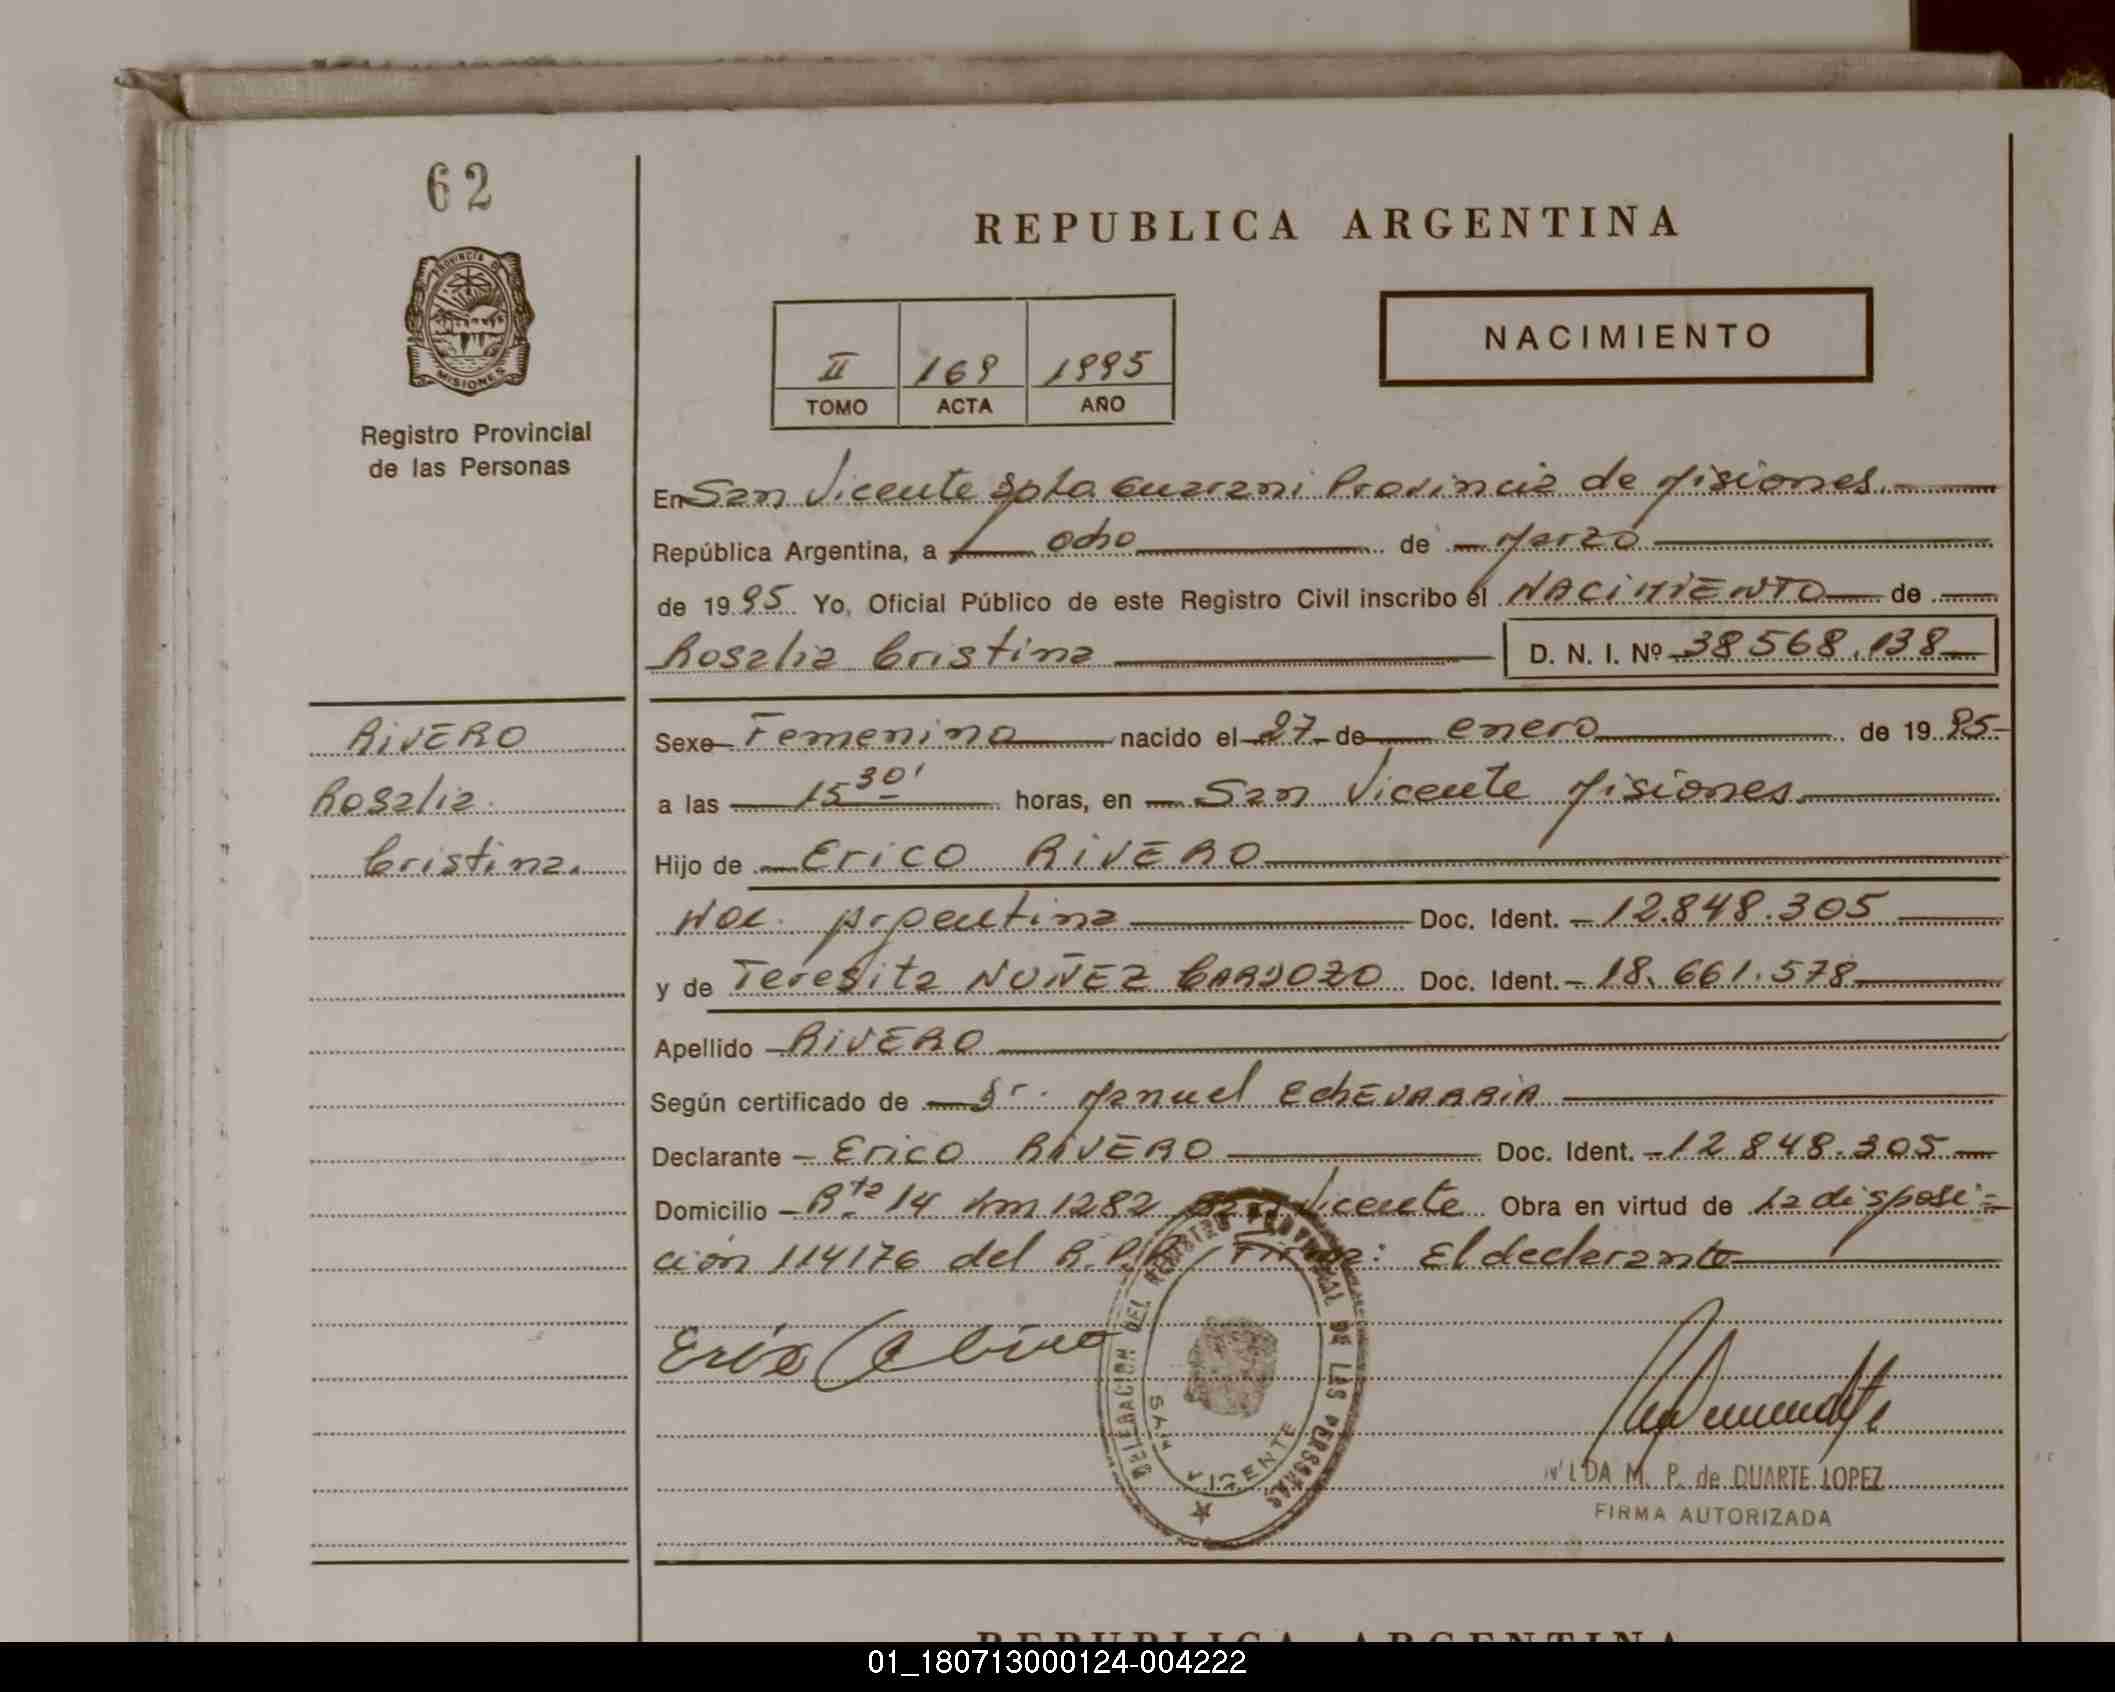 62
PROVINCIA DE
MISIONES
Registro Provincial
de las Personas
REPUBLICA ARGENTINA
NACIMIENTO
II 169 1995
TOMO ACTA AÑO
En San Vicente Dpto Guarani Provincia de Misiones.
República Argentina, a ocho de Marzo
de 1995 Yo, Oficial Público de este Registro Civil inscribo el NACIMIENTO de
Rosalia Cristina D. N. I. Nº 38568.138
RIVERO
Rosalia
Cristina.
Sexo Femenino nacido el 27 de enero de 1995
a las 15 30' horas, en San Vicente Misiones
Hijo de Erico RIVERO
Nac. Argentina Doc. Ident. 12.848.305
y de Teresita NUÑEZ CARDOZO Doc. Ident. 18.661.578
Apellido RIVERO
Según certificado de Dr. Manuel EchEVARRIA
Declarante Erico RIVERO Doc. Ident. 12848.305
Domicilio Rta 14 km 1282 San Vicente Obra en virtud de la disposi=
ción 114176 del R.P.P. Firma: El declarante
DELEGACION DEL REGISTRO PROVINCIAL DE LAS PERSONAS
SAN VICENTE
M. P. de DUARTE LOPEZ
FIRMA AUTORIZADA
REPUBLICA ARGENTINA
01_180713000124-004222